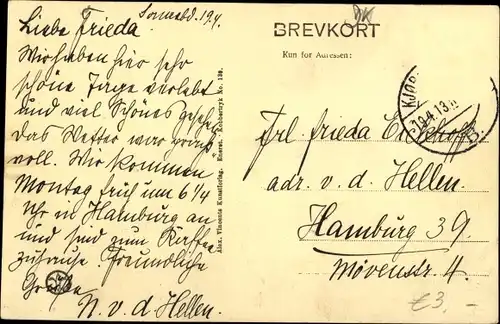 Sonnabd. 19.4.
Liebe Frieda.
Wir haben hier sehr
schöne Tage verlebt
und viel Schönes gesehen
das Wetter war
voll. Wir kommen
Montag früh um 6 1/4
Uhr in Hamburg an
und sind zum Kaffee
zuhause. Freundliche
Grüße
N. v. d. Hellen.
Alex. Vincents Kunstforlag, Eneret. Kobberstryk No. 139.
BREVKORT
Kun for Adressen:
19.4.13
Frl. Frieda
adr. v. d. Hellen.
Hamburg 39.
Mövenstr. 4.
€3.-